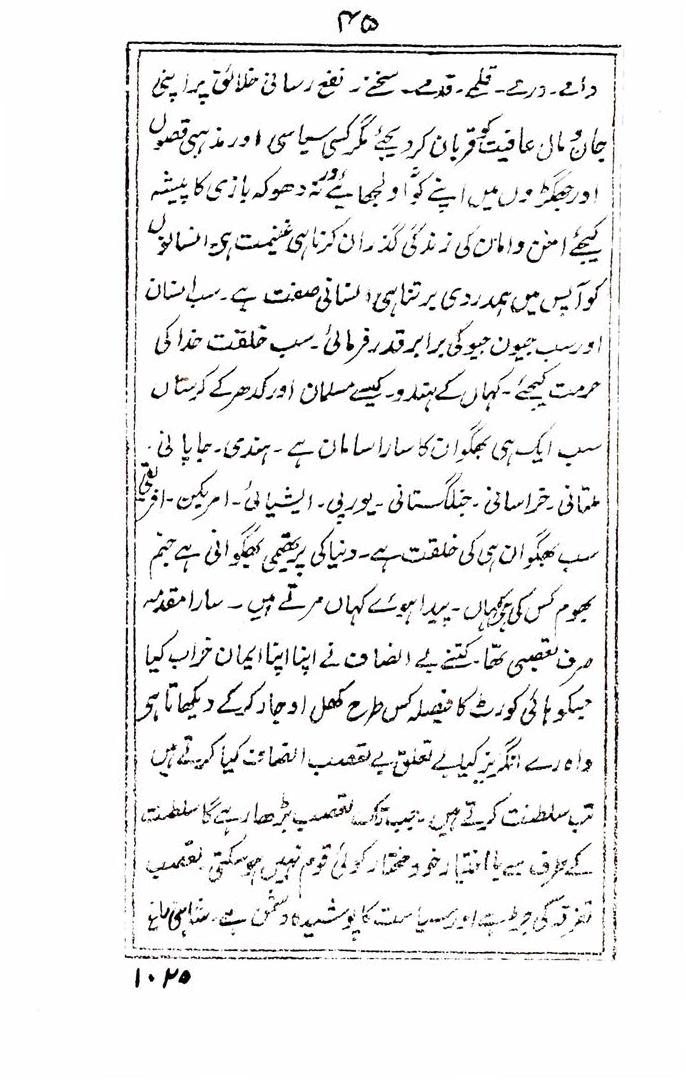 ۴۵
دامے۔ درمے۔ قلمے۔ قدمے۔ سخنے۔ نفع رسانی خلائق پر اپنی
جان و مال عافیت کو قربان کر دیجئے مگر کسی سیاسی اور مذہبی قصوں
اور جھگڑوں میں اپنے کو او لجھائیے ورنہ دھوکہ بازی کا پیشہ
کیجئے امن و امان کی زندگی گذران کرنا ہی غنیمت ہی۔ انسانوں
کو آپس میں ہمدردی برتنا ہی انسانی صفت ہے۔ سب انسان
اور سب جیون جیو کی برابر قدر فرمائی۔ سب خلقت خدا کی
حرمت کیجئے۔ کہاں کے ہندو۔ کیسے مسلمان اور کدھر کے کرستاں
سب ایک ہی بھگوان کا سارا سامان ہے۔ ہندی۔ جاپانی۔
ملتانی۔ خراسانی۔ جنگلستانی۔ یورپی۔ ایشیائی۔ امریکن۔ افریقی
سب بھگوان ہی کی خلقت ہے۔ دنیا کی پرتھمی بھگوانی ہے جنم
بھوم کس کی کہاں۔ پیدا ہوے کہاں مرتے ہیں۔ سارا مقدمہ
صرف تعصبی تھا۔ کتنے بے انصاف نے اپنا اپنا ایمان خراب کیا
جسکو ہائی کورٹ کا فیصلہ کس طرح کھل اوجار کر کے دیکھاتا ہی
واہ رے انگریز کیا بے تعلق بے تعصب انصاف کیا کرتے ہیں
تب سلطنت کرتے ہیں۔ جب تک تعصب بڑھا رہے گا سلطنت
کے طرف سے با اختیار خود مختار کوئی قوم نہیں ہو سکتی تعصب
تفرقہ کی جڑ ہے اور سیاست کا پوشیدہ دشمن ہے۔ شاہی باغ
۱۰۲۵